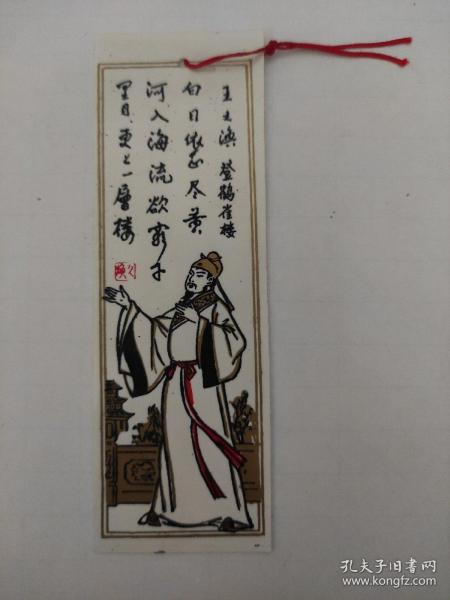 王之涣 登鹳雀楼
白日依山尽黄
河入海流欲穷千
里目更上一层楼
孔夫子旧书网
www.kongfz.com